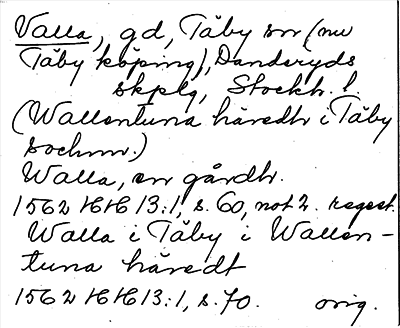 Valla, gd, Täby sn (nu
Täby köping), Danderyds
skplg, Stockh. l.
(Wallentuna häredh i Täby
sochnn.)
Walla, en gårdh.
1562 HH 13:1, s. 60, not 2. regest.
Walla i Täby i Wallen-
tuna häredt
1562 HH 13:1, s. 70. orig.